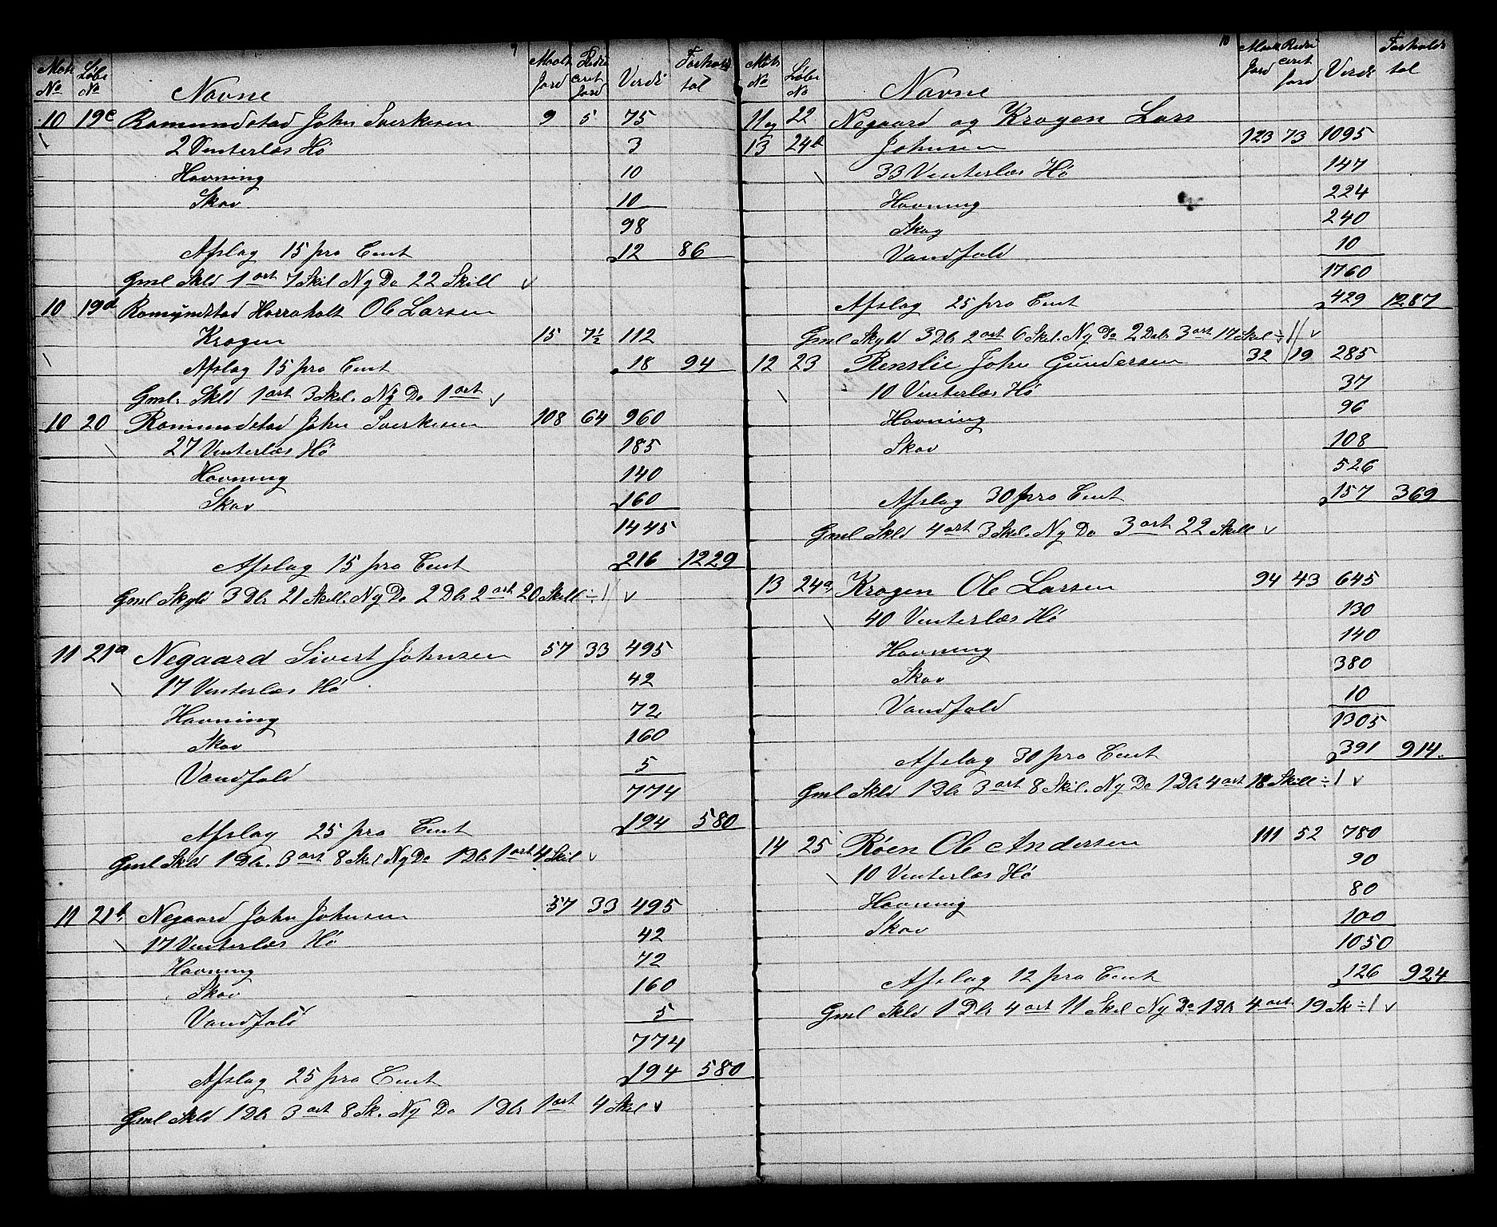 9
Mat. No Løbe No Navne Maalt Jord Redu cert Jord Værdi Forholds tal
10 19c Romundstad John Sverkesen 9 5 75
2 Vinterlæs Hø 3
Havning 10
Skov 10
98
Afslag 15 pro Cent 12 86
Gml Skld 1 ort 7 Skil Ny Do 22 Skill
10 19d Romundstad Horraholt Ole Larsen
Krogen 15 7½ 112
Afslag 15 pro Cent 18 94
Gml. Skld 1 ort 3 Skil. Ny Do 1 ort
10 20 Romundstad John Sverkesen 108 64 960
27 Vinterlæs Hø 185
Havning 140
Skov 160
1445
Afslag 15 pro Cent 216 1229
Gml Skyld 3 Dlr 21 Skill. Ny Do 2 Dlr 2 ort 20 Skill ÷ 1
11 21a Negaard Sivert Johnsen 57 33 495
17 Vinterlæs Hø 42
Havning 72
Skov 160
Vandfald 5
774
Afslag 25 pro Cent 194 580
Gml Skld 1 Dlr. 3 ort 8 Skil Ny Do 1 Dlr 1 ort 4 Skil
11 21b Negaard John Johnsen 57 33 495
17 Vinterlæs Hø 42
Havning 72
Skov 160
Vandfald 5
774
Afslag 25 pro Cent 194 580
Gml Skld 1 Dlr 3 ort 8 Sk. Ny Do 1 Dlr 1 ort 4 Skil
10
Mat. No Løbe No Navne Maalt Jord Redu cert Jord Værdi Forholds tal
11 og 22 Negaard og Krogen Lars
13 24b Johnsen 123 73 1095
33 Vinterlæs Hø 147
Havning 224
Skog 240
Vandfald 10
1760
Afslag 25 pro Cent 429 1287
Gml Skyld 3 Dlr 2 ort 6 Skil. Ny Do 2 Dalr 3 ort 17 Skil ÷ 1
12 23 Renslie John Gundersen 32 19 285
10 Vinterlæs Hø 37
Havning 96
Skov 108
526
Afslag 30 pro Cent 157 369
Gml Skld 4 ort 3 Skil. Ny Do 3 ort 22 Skill
13 24a Krogen Ole Larsen 94 43 645
40 Vinterlæs Hø 130
Havning 140
Skov 380
Vandfald 10
1305
Afslag 30 pro Cent 391 914
Gml Skld 1 Dlr 3 ort 8 Skil. Ny Do 1 Dlr 4 ort 18 Skill ÷ 1
14 25 Røen Ole Andersen 111 52 780
10 Vinterlæs Hø 90
Havning 80
Skov 100
1050
Afslag 12 pro Cent 126 924
Gml Skld 1 Dlr 4 ort 11 Skil Ny Do 1 Dlr 4 ort 19 Sk ÷ 1